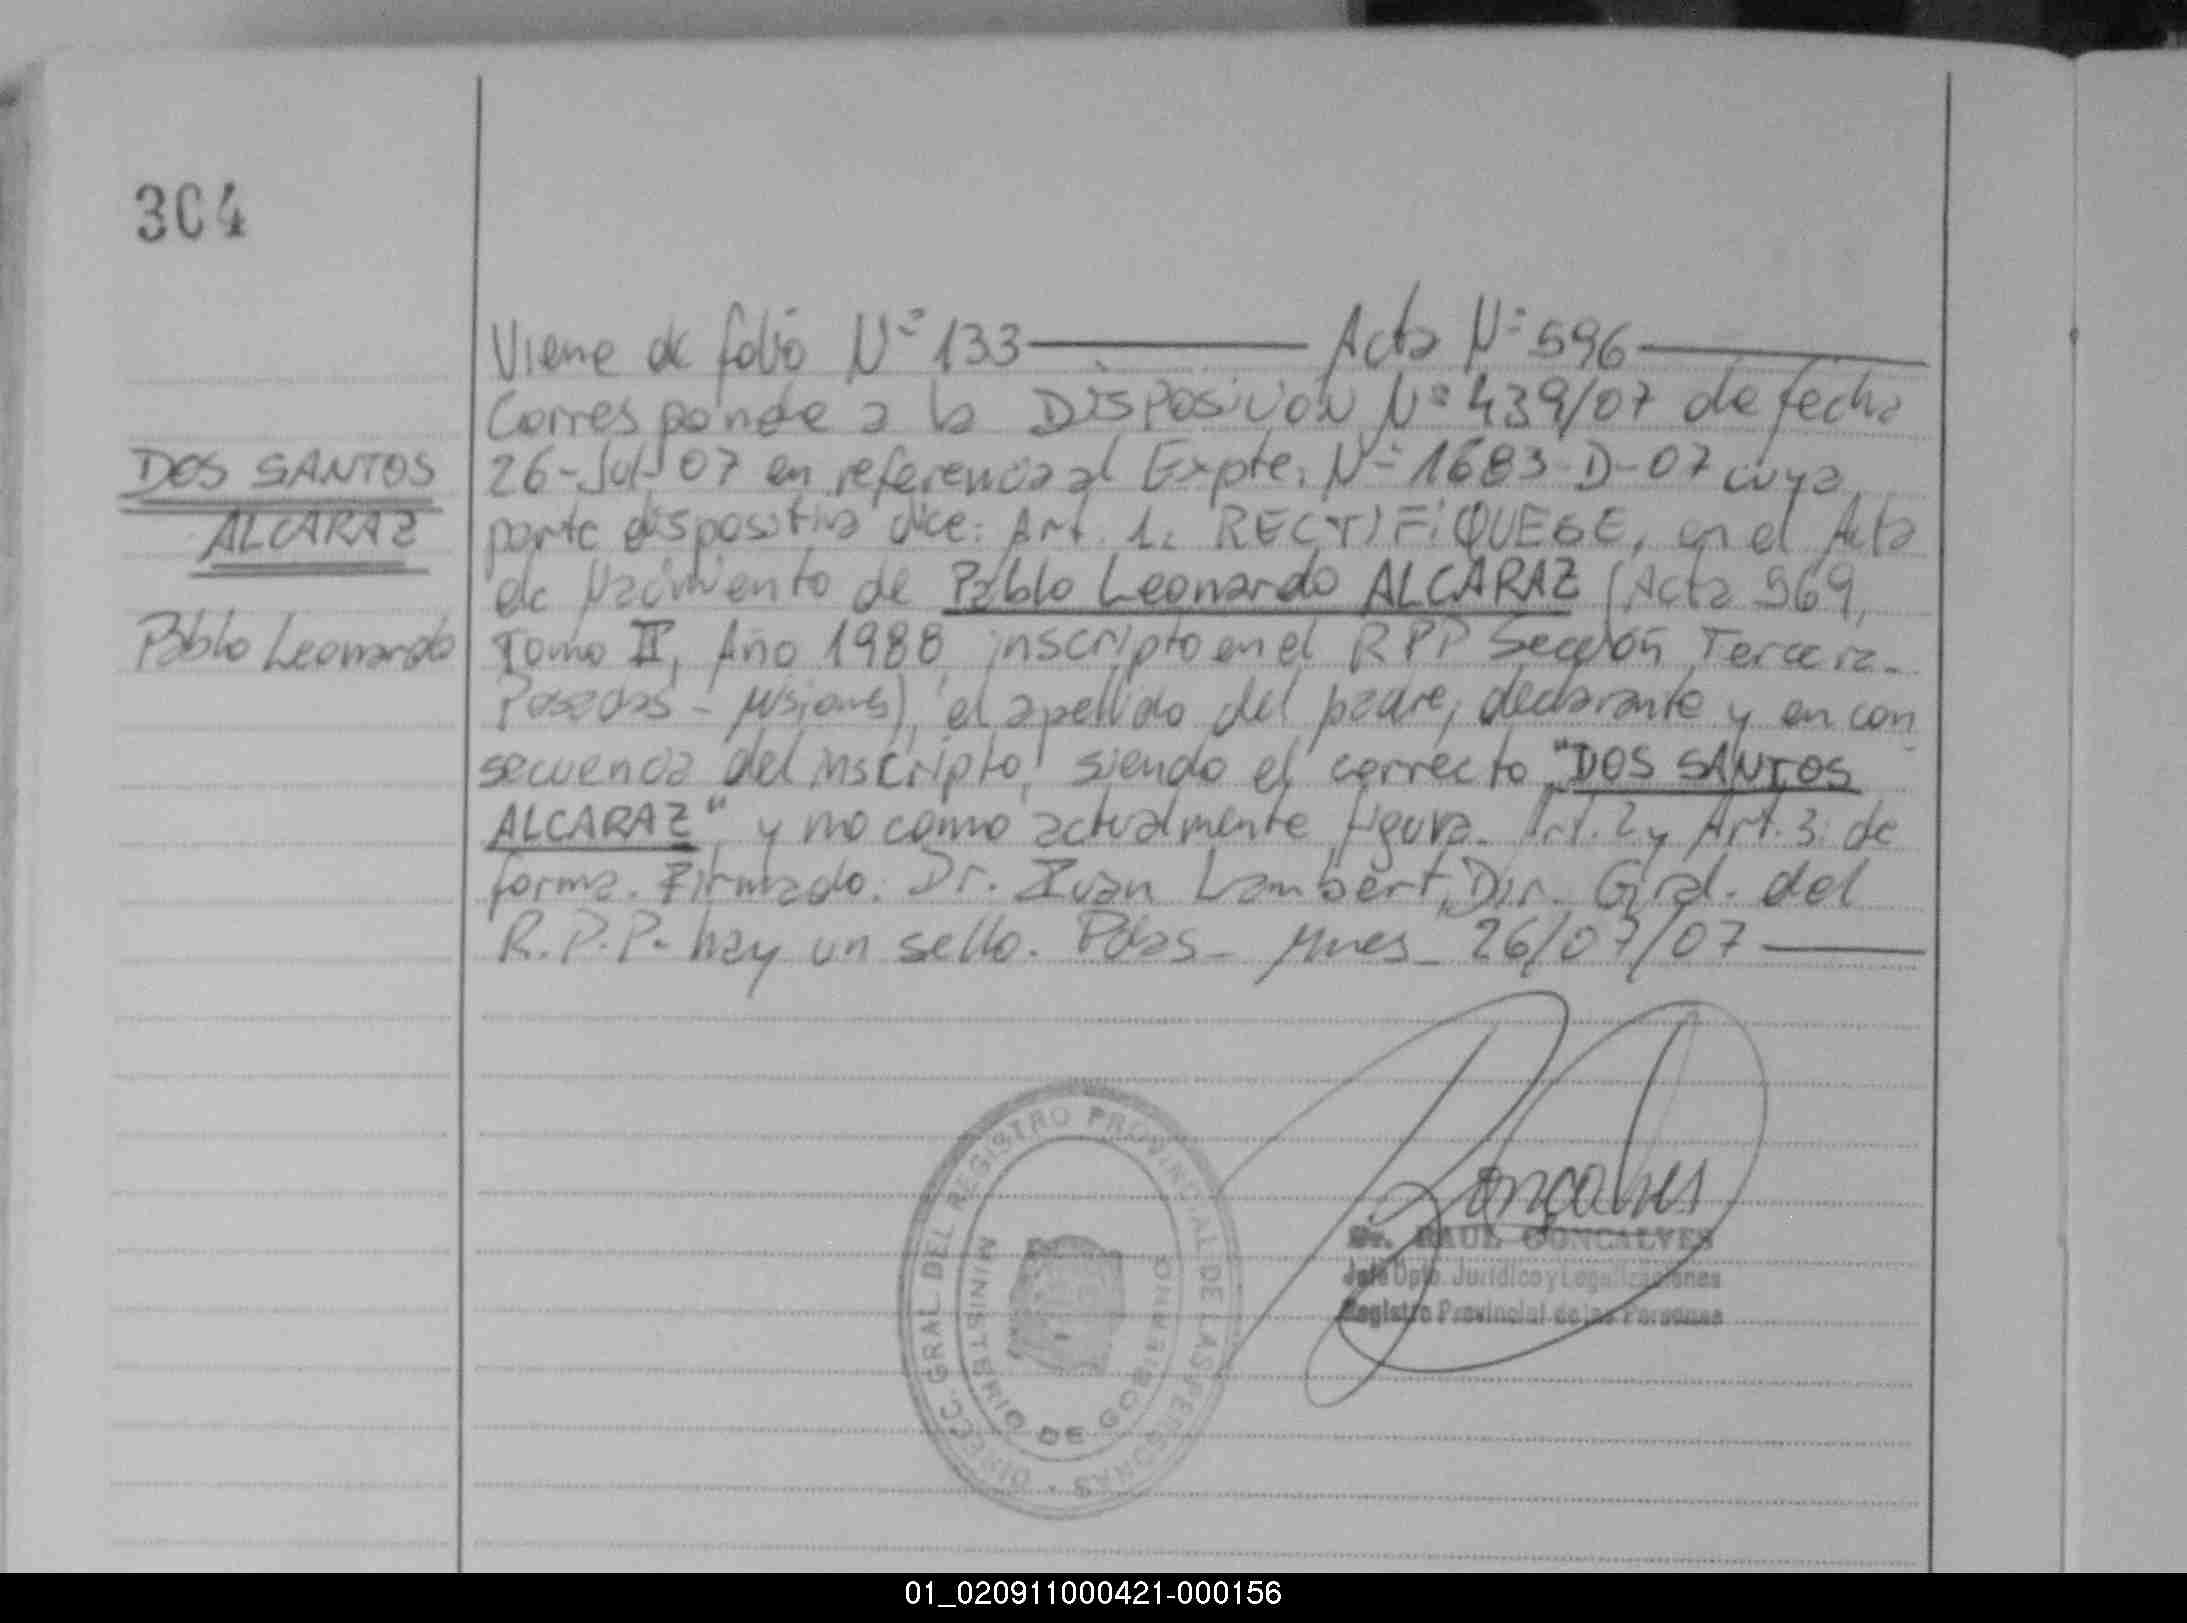 304
Viene de folio Nº 133 ——— Acta Nº 596 ———
Corresponde a la Disposición Nº 439/07 de fecha
DOS SANTOS
26-Jul-07 en referencia al Expte. Nº 1683-D-07 cuya
ALCARAZ
parte dispositiva dice: Art. 1: RECTIFIQUESE, en el Acta
de Nacimiento de Pablo Leonardo ALCARAZ (Acta 969,
Pablo Leonardo
Tomo II, Año 1988, inscripto en el RPP Sección Tercera.
Posadas - Misiones), el apellido del padre, declarante y en con
secuencia del inscripto, siendo el correcto "DOS SANTOS
ALCARAZ" y no como actualmente figura. Art. 2 y Art. 3: de
forma. Firmado. Dr. Ivan Lambert, Dir. Gral. del
R.P.P. hay un sello. Pdas - Mnes - 26/07/07 ———
DIRECC. GRAL DEL REGISTRO PROVINCIAL DE LAS PERSONAS
MINISTERIO DE GOBIERNO
Goncalves
Dr. RAUL GONCALVES
Jefe Dpto. Jurídico y Legalizaciones
Registro Provincial de las Personas
01_020911000421-000156